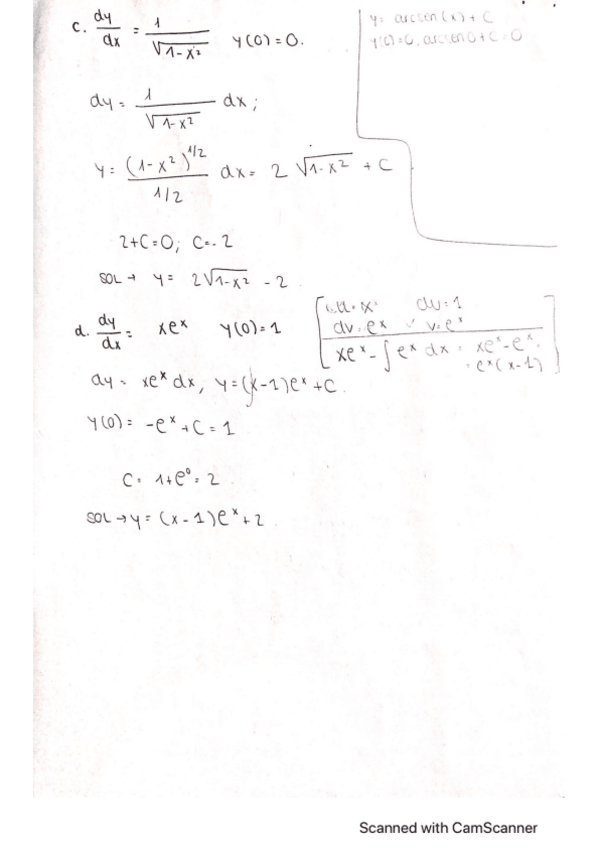 c. dy/dx = 1/√(1-x²) y(0)=0.
y= arcsen(x)+C
y(0)=0, arcsen0+C=0
dy= 1/√(1-x²) dx;
y= (1-x²)^(1/2)/(1/2) dx= 2√(1-x²) + C
2+C=0; C=-2
SOL→ y= 2√(1-x²) - 2
d. dy/dx= xe^x y(0)=1
u=x du=1
dv=e^x v=e^x
xe^x-∫e^x dx = xe^x-e^x=
=e^x(x-1)
dy= xe^x dx, y=(x-1)e^x+C.
y(0)= -e^x+C=1
C= 1+e⁰=2
SOL→y=(x-1)e^x+2
Scanned with CamScanner